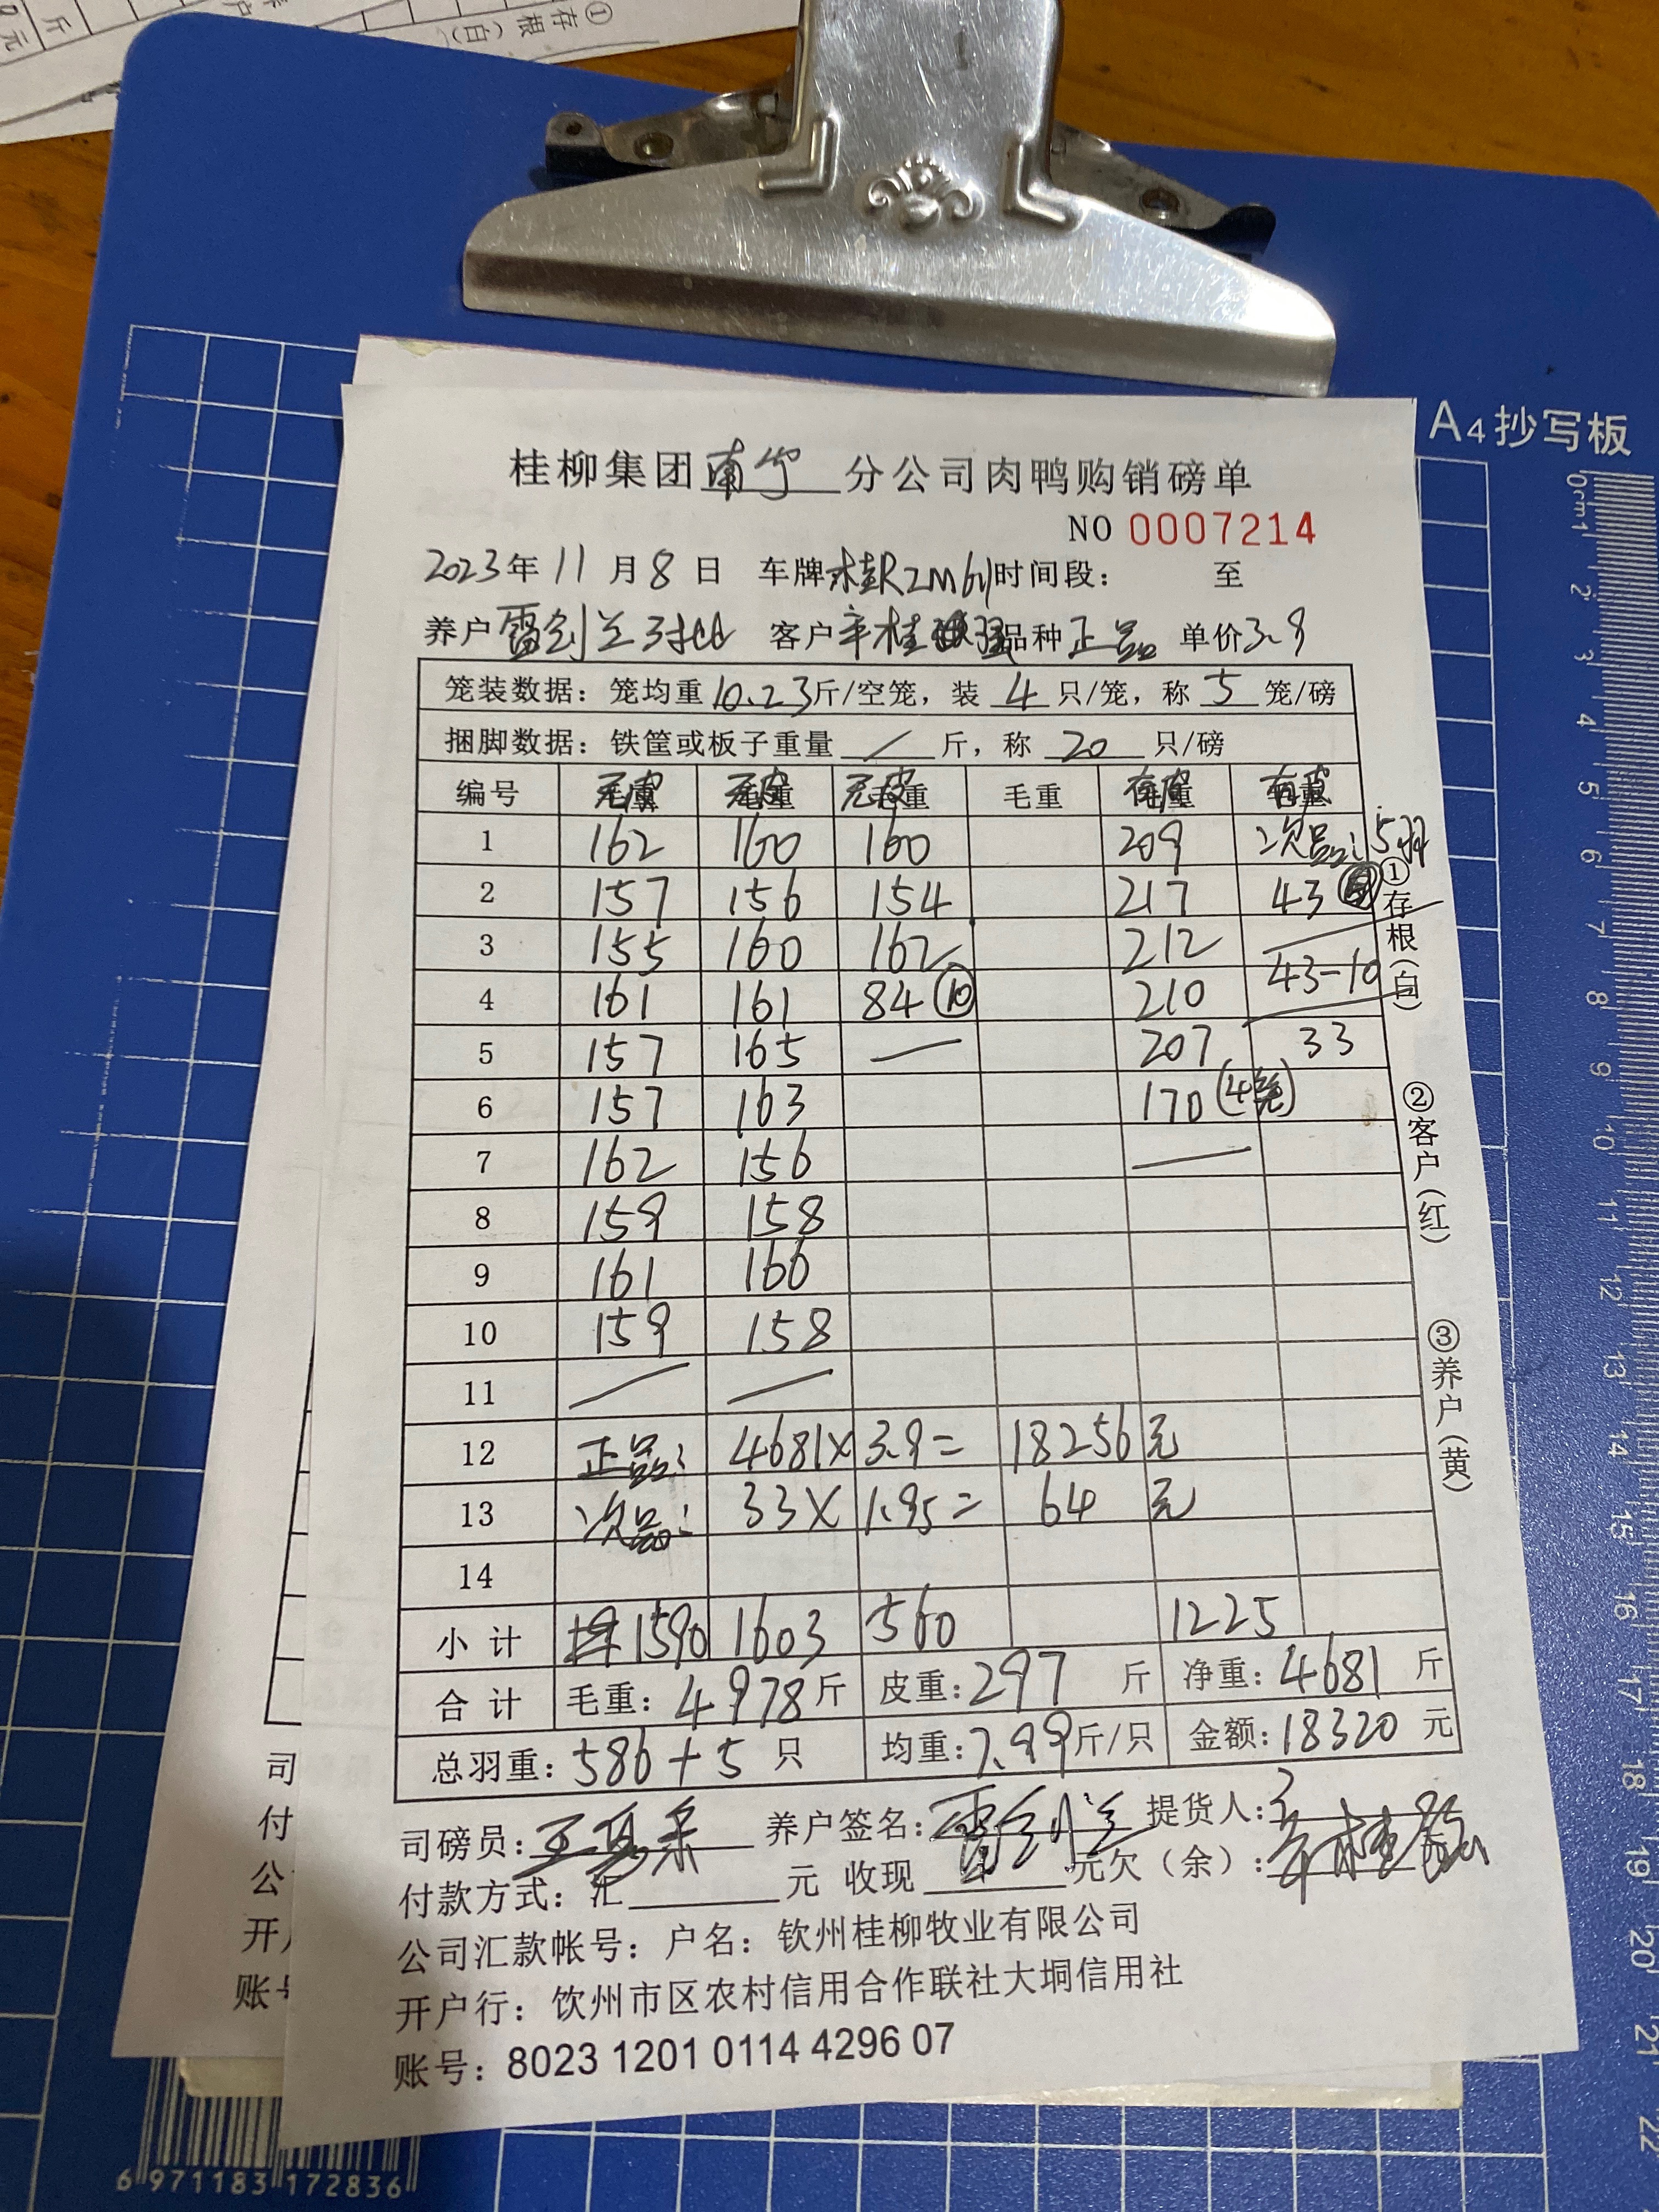 ①存根(白)
斤
元
A4抄写板
0cm1 2 3 4 5 6 7 8 9 10 11 12 13 14 15 16 17 18 19 20 21 22
桂柳集团南宁分公司肉鸭购销磅单
NO 0007214
2023年11月8日 车牌桂R2M61时间段: 至
养户雷剑兰对比 客户辛桂 品种正品 单价3.9
笼装数据:笼均重10.23斤/空笼,装4只/笼,称5笼/磅
捆脚数据:铁筐或板子重量/斤,称20只/磅
编号 无皮 无皮 无皮 毛重 有皮 有皮
1 162 160 160 209 次品:5羽
2 157 156 154 217 43
3 155 160 162 212
4 161 161 84⑩ 210 43-10
5 157 165 — 207 33
6 157 163 170(4笼)
7 162 156 —
8 159 158
9 161 166
10 159 158
11
12 正品: 4681×3.9= 18256元
13 次品: 33×1.95= 64元
14
小计 1590 1603 560 1225
合计 毛重:4978斤 皮重:297斤 净重:4681斤
总羽重:586+5只 均重:7.99斤/只 金额:18320元
①存根(白)
②客户(红)
③养户(黄)
司磅员: 养户签名:雷剑兰 提货人:
付款方式:汇 元 收现 元欠(余):
公司汇款帐号:户名:钦州桂柳牧业有限公司
开户行:饮州市区农村信用合作联社大垌信用社
账号:8023 1201 0114 4296 07
司
付
公
开
账号
6 971183 172836